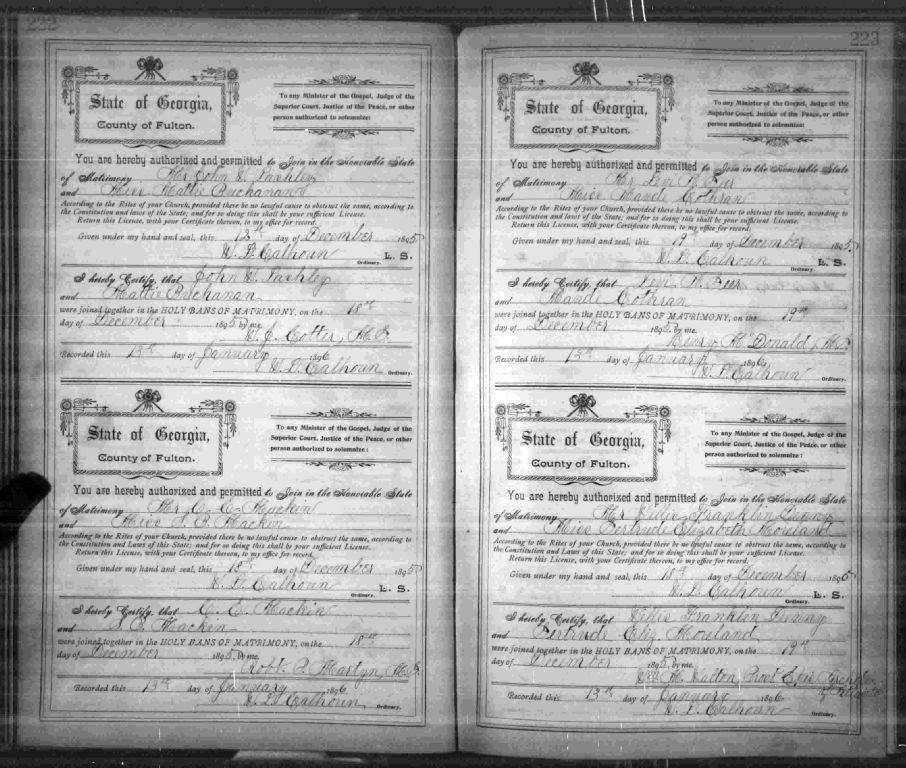 222
State of Georgia,
County of Fulton.
To any Minister of the Gospel, Judge of the
Superior Court, Justice of the Peace, or other
person authorized to solemnize:
You are hereby authorized and permitted to Join in the Honorable State
of Matrimony Mr John W. Lashley
and Miss Mattie Buchanan
According to the Rites of your Church, provided there be no lawful cause to obstruct the same, according to
the Constitution and laws of the State; and for so doing this shall be your sufficient License.
Return this License, with your Certificate thereon, to my office for record.
Given under my hand and seal, this day of December 1895
W. L. Calhoun L. S.
Ordinary.
I hereby Certify, that John W. Lashley
and Mattie Buchanan
were joined together in the HOLY BANS OF MATRIMONY, on the 18th
day of December 1895 by me.
W. J. Cotter, M.G.
Recorded this 13th day of January 1896
W. L. Calhoun Ordinary.
State of Georgia,
County of Fulton.
To any Minister of the Gospel, Judge of the
Superior Court, Justice of the Peace, or other
person authorized to solemnize:
You are hereby authorized and permitted to Join in the Honorable State
of Matrimony Mr C. C. Mackin
and Miss Mackin
According to the Rites of your Church, provided there be no lawful cause to obstruct the same, according to
the Constitution and Laws of this State; and for so doing this shall be your sufficient License.
Return this License, with your Certificate thereon, to my office for record.
Given under my hand and seal, this 18th day of December 1895
W. L. Calhoun L. S.
Ordinary.
I hereby Certify, that C. C. Mackin
and Mackin
were joined together in the HOLY BANS OF MATRIMONY, on the 18th
day of December 1895, by me.
Robt. P. Martyn, M.G.
Recorded this 13th day of January 1896
W. L. Calhoun Ordinary.
223
State of Georgia,
County of Fulton.
To any Minister of the Gospel, Judge of the
Superior Court, Justice of the Peace, or other
person authorized to solemnize:
You are hereby authorized and permitted to Join in the Honorable State
of Matrimony Mr Levi
and Miss Maude Cothran
According to the Rites of your Church, provided there be no lawful cause to obstruct the same, according to
the Constitution and laws of the State; and for so doing this shall be your sufficient License.
Return this License, with your Certificate thereon, to my office for record.
Given under my hand and seal, this 19th day of December 1895
W. L. Calhoun L. S.
Ordinary.
I hereby Certify, that Levi
and Maude Cothran
were joined together in the HOLY BANS OF MATRIMONY, on the 19th
day of December 1895, by me.
Henry McDonald, M.G.
Recorded this 13th day of January 1896
W. L. Calhoun Ordinary.
State of Georgia,
County of Fulton.
To any Minister of the Gospel, Judge of the
Superior Court, Justice of the Peace, or other
person authorized to solemnize:
You are hereby authorized and permitted to Join in the Honorable State
of Matrimony Mr Willie Franklin
and Miss Gertrude Elizabeth Mouland
According to the Rites of your Church, provided there be no lawful cause to obstruct the same, according to
the Constitution and Laws of this State; and for so doing this shall be your sufficient License.
Return this License, with your Certificate thereon, to my office for record.
Given under my hand and seal, this 18th day of December 1895
W. L. Calhoun L. S.
Ordinary.
I hereby Certify, that Willie Franklin
and Gertrude Eliz. Mouland
were joined together in the HOLY BANS OF MATRIMONY, on the 19th
day of December 1895, by me.
Prot Epis
Recorded this 13th day of January 1896
W. L. Calhoun Ordinary.